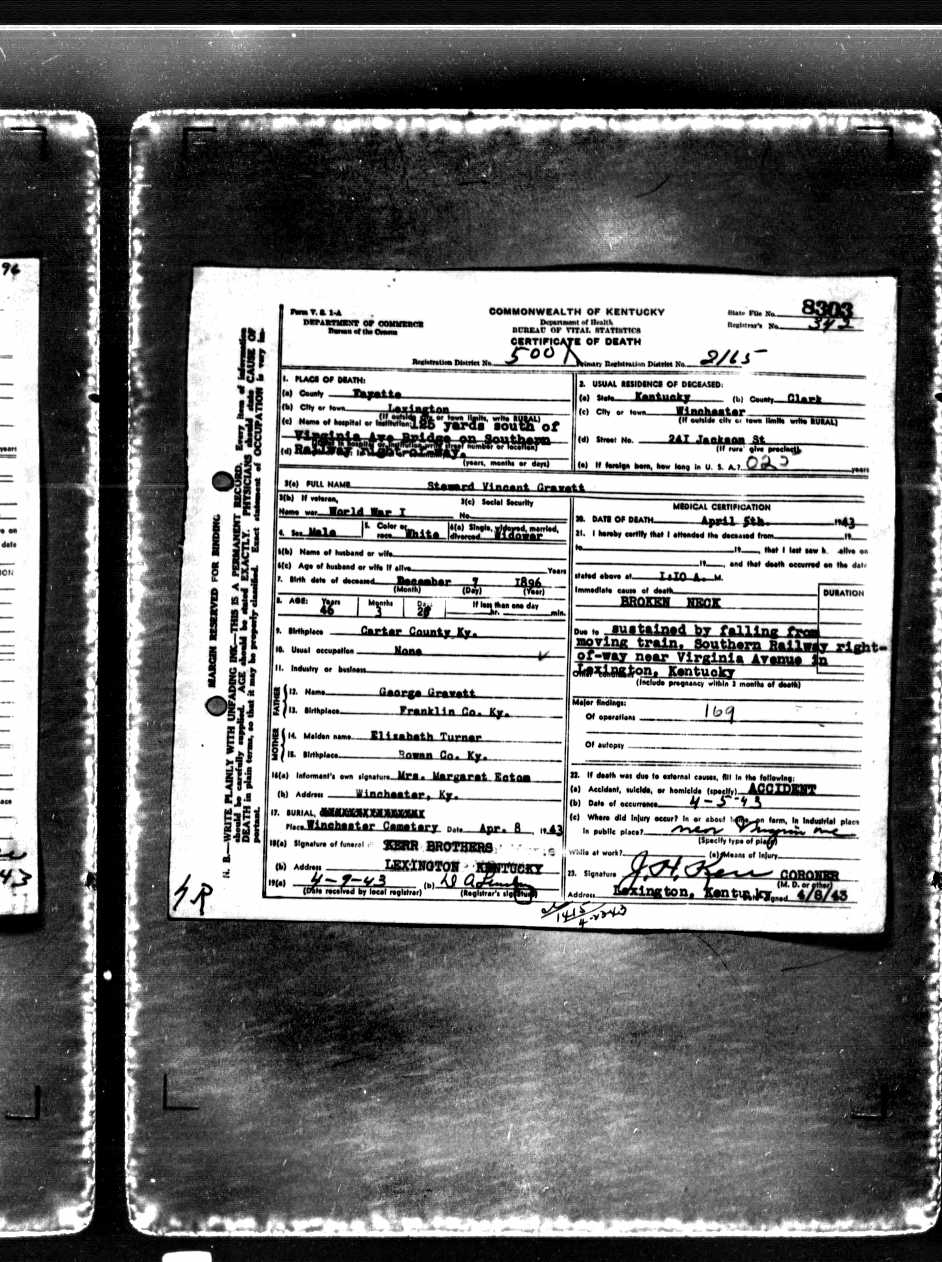 96
Form V. S. 1-A
DEPARTMENT OF COMMERCE
Bureau of the Census
COMMONWEALTH OF KENTUCKY
Department of Health
BUREAU OF VITAL STATISTICS
CERTIFICATE OF DEATH
State File No. 8303
Registrar's No. 343
Registration District No. 500 Primary Registration District No. 2165
MARGIN RESERVED FOR BINDING
N. B.—WRITE PLAINLY WITH UNFADING INK—THIS IS A PERMANENT RECORD. Every item of information
should be carefully supplied. AGE should be stated EXACTLY. PHYSICIANS should state CAUSE OF
DEATH in plain terms, so that it may be properly classified. Exact statement of OCCUPATION is very im-
portant.
1. PLACE OF DEATH:
(a) County Fayette
(b) City or town Lexington
(If outside city or town limits, write RURAL)
(c) Name of hospital or institution: 125 yards south of
Virginia Ave Bridge on Southern
(d) Railway right-of-way.
(years, months or days)
2. USUAL RESIDENCE OF DECEASED:
(a) State Kentucky (b) County Clark
(c) City or town Winchester
(If outside city or town limits write RURAL)
(d) Street No. 241 Jackson St
(If rural give precinct)
(e) If foreign born, how long in U. S. A.? years
3(a) FULL NAME Steward Vincent Gravett
3(b) If veteran,
Name war World War I
3(c) Social Security
No.
4. Sex Male
5. Color or
race White
6(a) Single, widowed, married,
divorced Widower
6(b) Name of husband or wife
6(c) Age of husband or wife if alive Years
7. Birth date of deceased December 7 1896
(Month) (Day) (Year)
8. AGE: Years Months Days If less than one day
46 3 28 hr. min.
9. Birthplace Carter County Ky.
10. Usual occupation None
11. Industry or business
FATHER
12. Name George Gravett
13. Birthplace Franklin Co. Ky.
MOTHER
14. Maiden name Elizabeth Turner
15. Birthplace Rowan Co. Ky.
16(a) Informant's own signature Mrs. Margaret Eetom
(b) Address Winchester, Ky.
17. BURIAL,
Place Winchester Cemetary Date Apr. 8, 1943
18(a) Signature of funeral KERR BROTHERS
(b) Address LEXINGTON KENTUCKY
19(a) 4-9-43 (b)
(Date received by local registrar) (Registrar's signature)
MEDICAL CERTIFICATION
20. DATE OF DEATH April 5th. 1943
21. I hereby certify that I attended the deceased from 19
to 19, that I last saw h alive on
19, and that death occurred on the date
stated above at 1:10 A. M.
Immediate cause of death
DURATION
BROKEN NECK
Due to sustained by falling from
moving train, Southern Railway right-
of-way near Virginia Avenue in
Lexington, Kentucky
Other conditions
(Include pregnancy within 3 months of death)
Major findings:
Of operations 169
Of autopsy
22. If death was due to external causes, fill in the following:
(a) Accident, suicide, or homicide (specify) ACCIDENT
(b) Date of occurrence 4-5-43
(c) Where did injury occur? In or about home, on farm, in industrial place
in public place? near Virginia ave
(Specify type of place)
While at work? (e) Means of injury
23. Signature J. H. Kerr CORONER
(M. D. or other)
Address Lexington, Kentucky Date signed 4/8/43
SR
1415
4-22-43